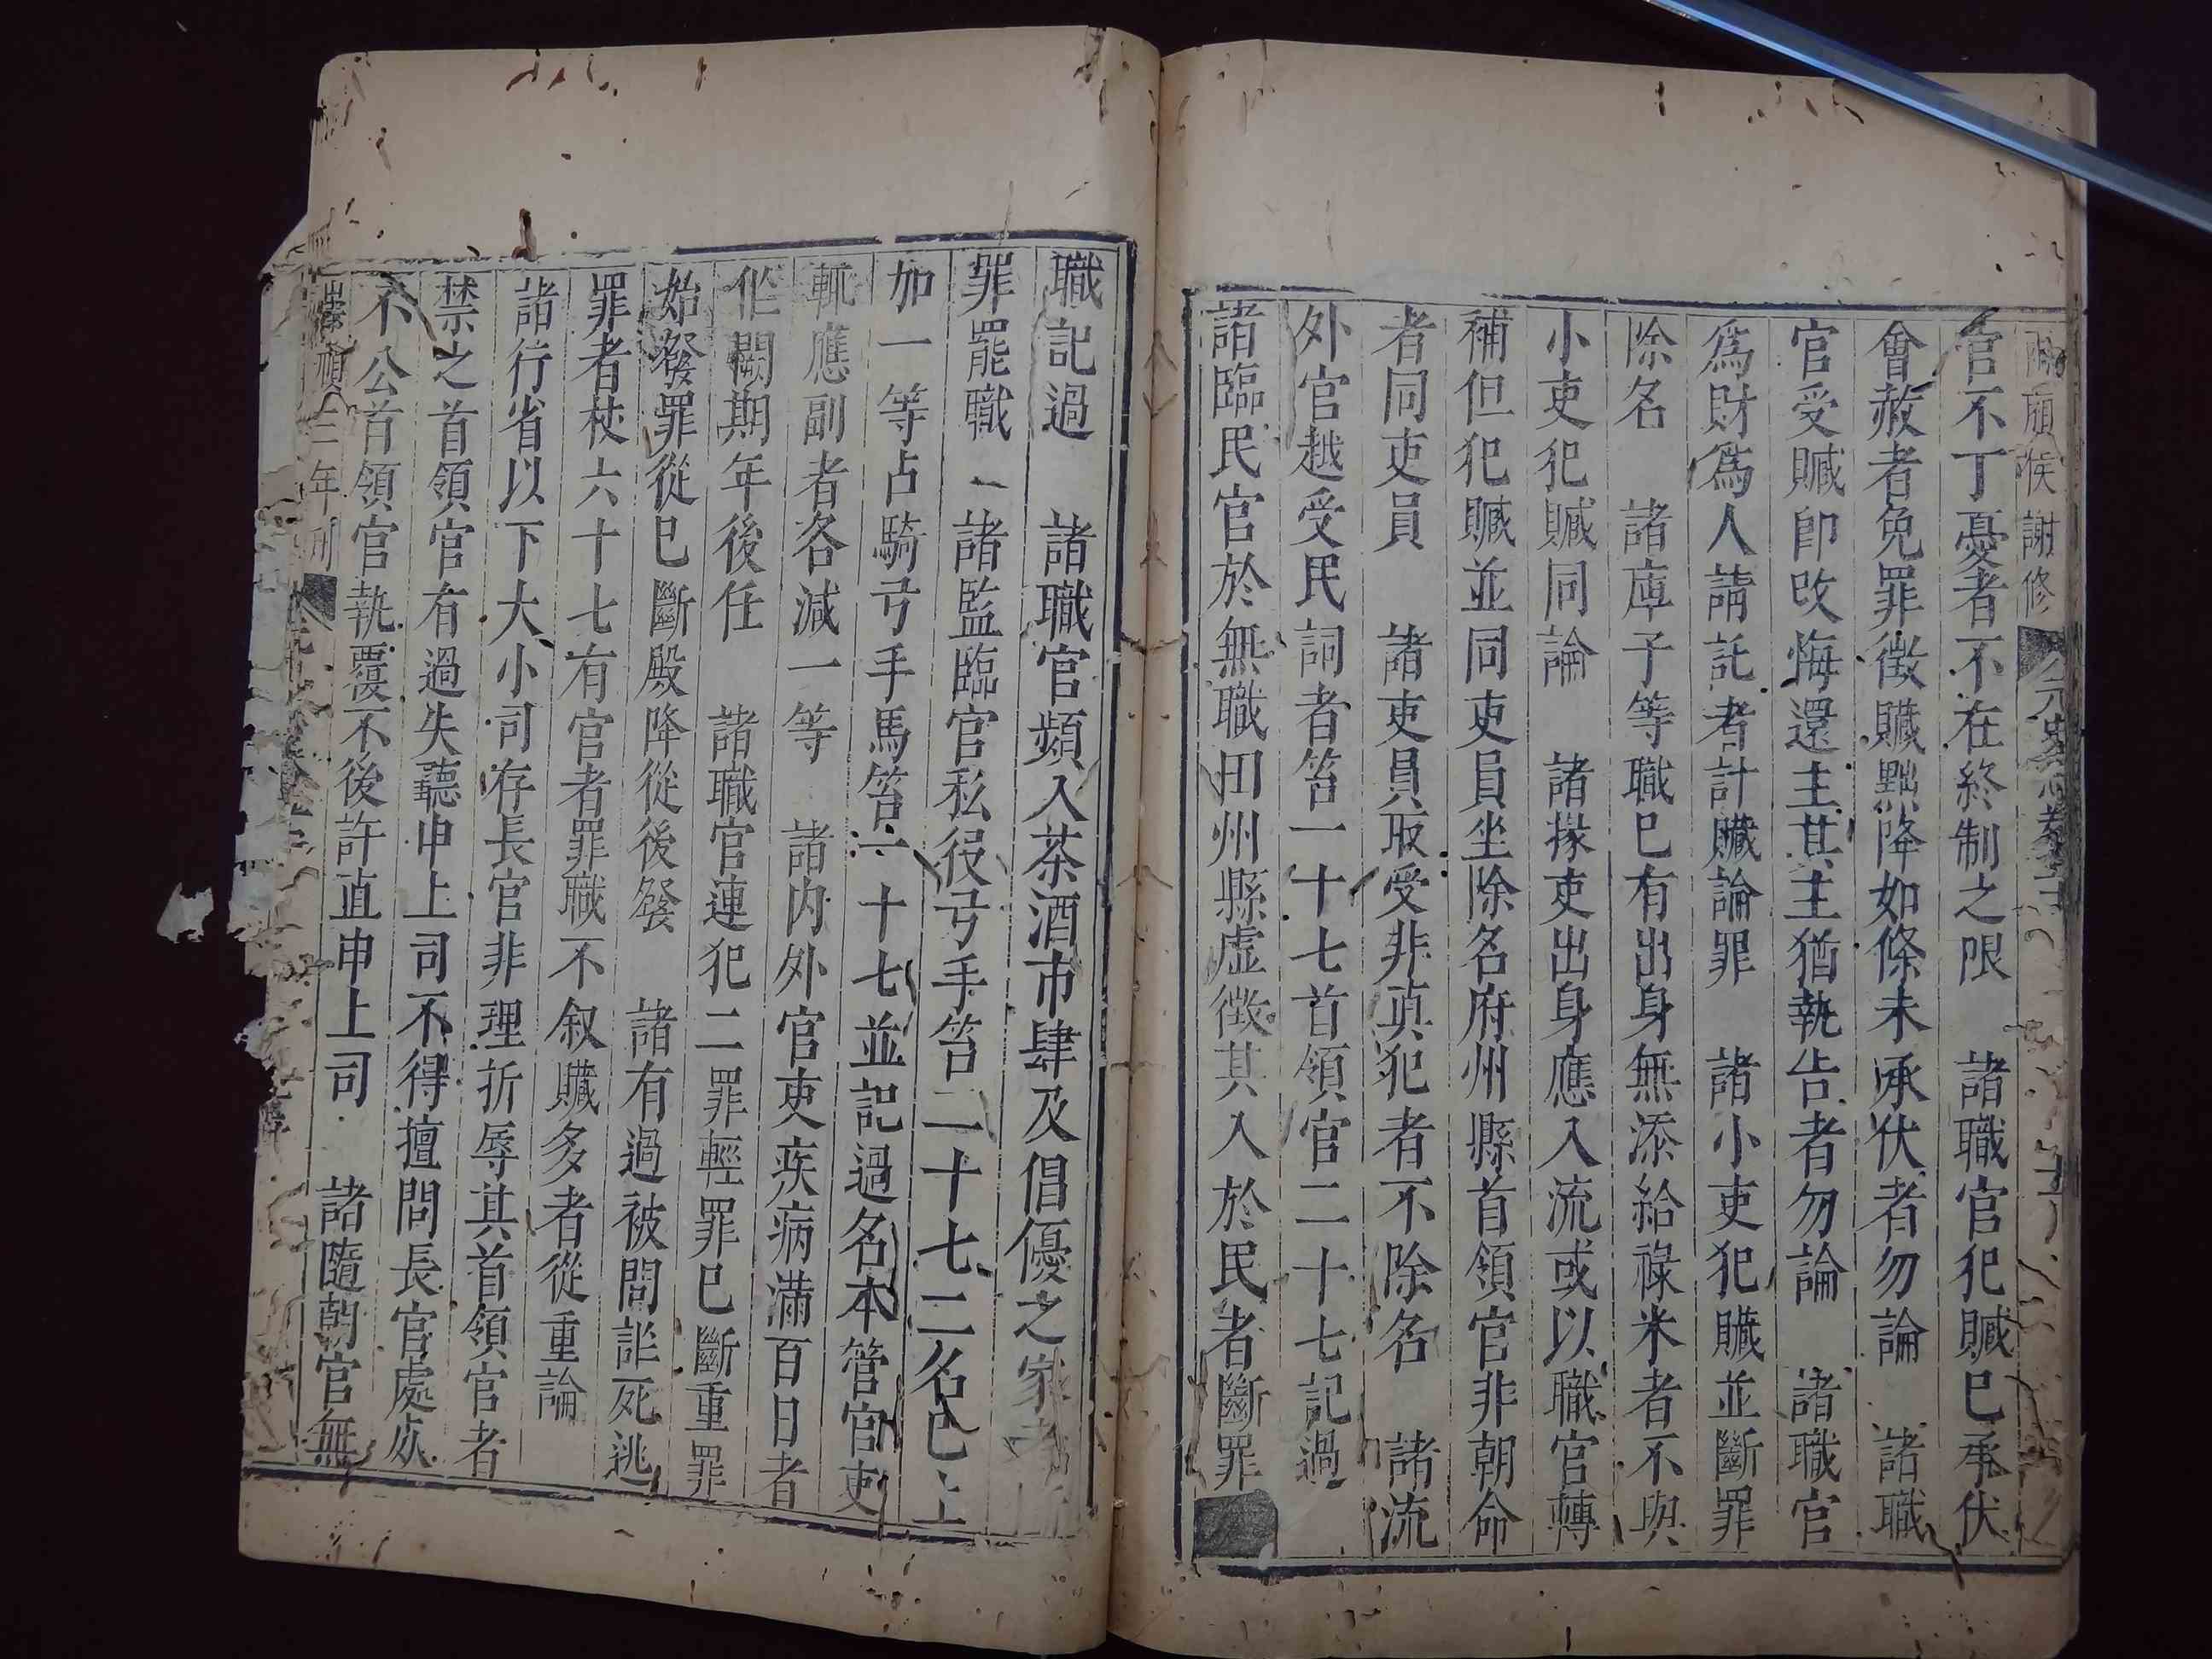 廂侯謝修 元史志卷五十
官不丁憂者不在終制之限 諸職官犯贓已承伏
會赦者免罪徵贓黜降如條未承伏者勿論 諸職
官受贓卽改悔還主其主猶執告者勿論 諸職官
爲財爲人請託者計贓論罪 諸小吏犯贓並斷罪
除名 諸庫子等職已有出身無添給祿米者不與
小吏犯贓同論 諸掾吏出身應入流或以職官轉
補但犯贓並同吏員坐除名府州縣首領官非朝命
者同吏員 諸吏員取受非真犯者不除名 諸流
外官越受民詞者笞一十七首領官二十七記過
諸臨民官於無職田州縣虛徵其入於民者斷罪
職記過 諸職官頻入茶酒市肆及倡優之家者斷
罪罷職 諸監臨官私役弓手笞二十七二名已上
加一等占騎弓手馬笞一十七並記過名本管官吏
輒應副者各減一等 諸內外官吏疾病滿百日者
作闕期年後任 諸職官連犯二罪輕罪已斷重罪
始發罪從已斷殿降從後發 諸有過被問詐死逃
罪者杖六十七有官者罪職不叙贓多者從重論
諸行省以下大小司存長官非理折辱其首領官者
禁之首領官有過失聽申上司不得擅問長官處决
不公首領官執覆不後許直申上司 諸隨朝官無
崇禎三年刊